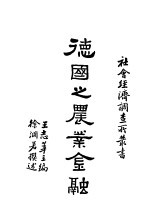 社會經濟調查所叢書
德國之農業金融
王志莘主編
徐淵若撰述